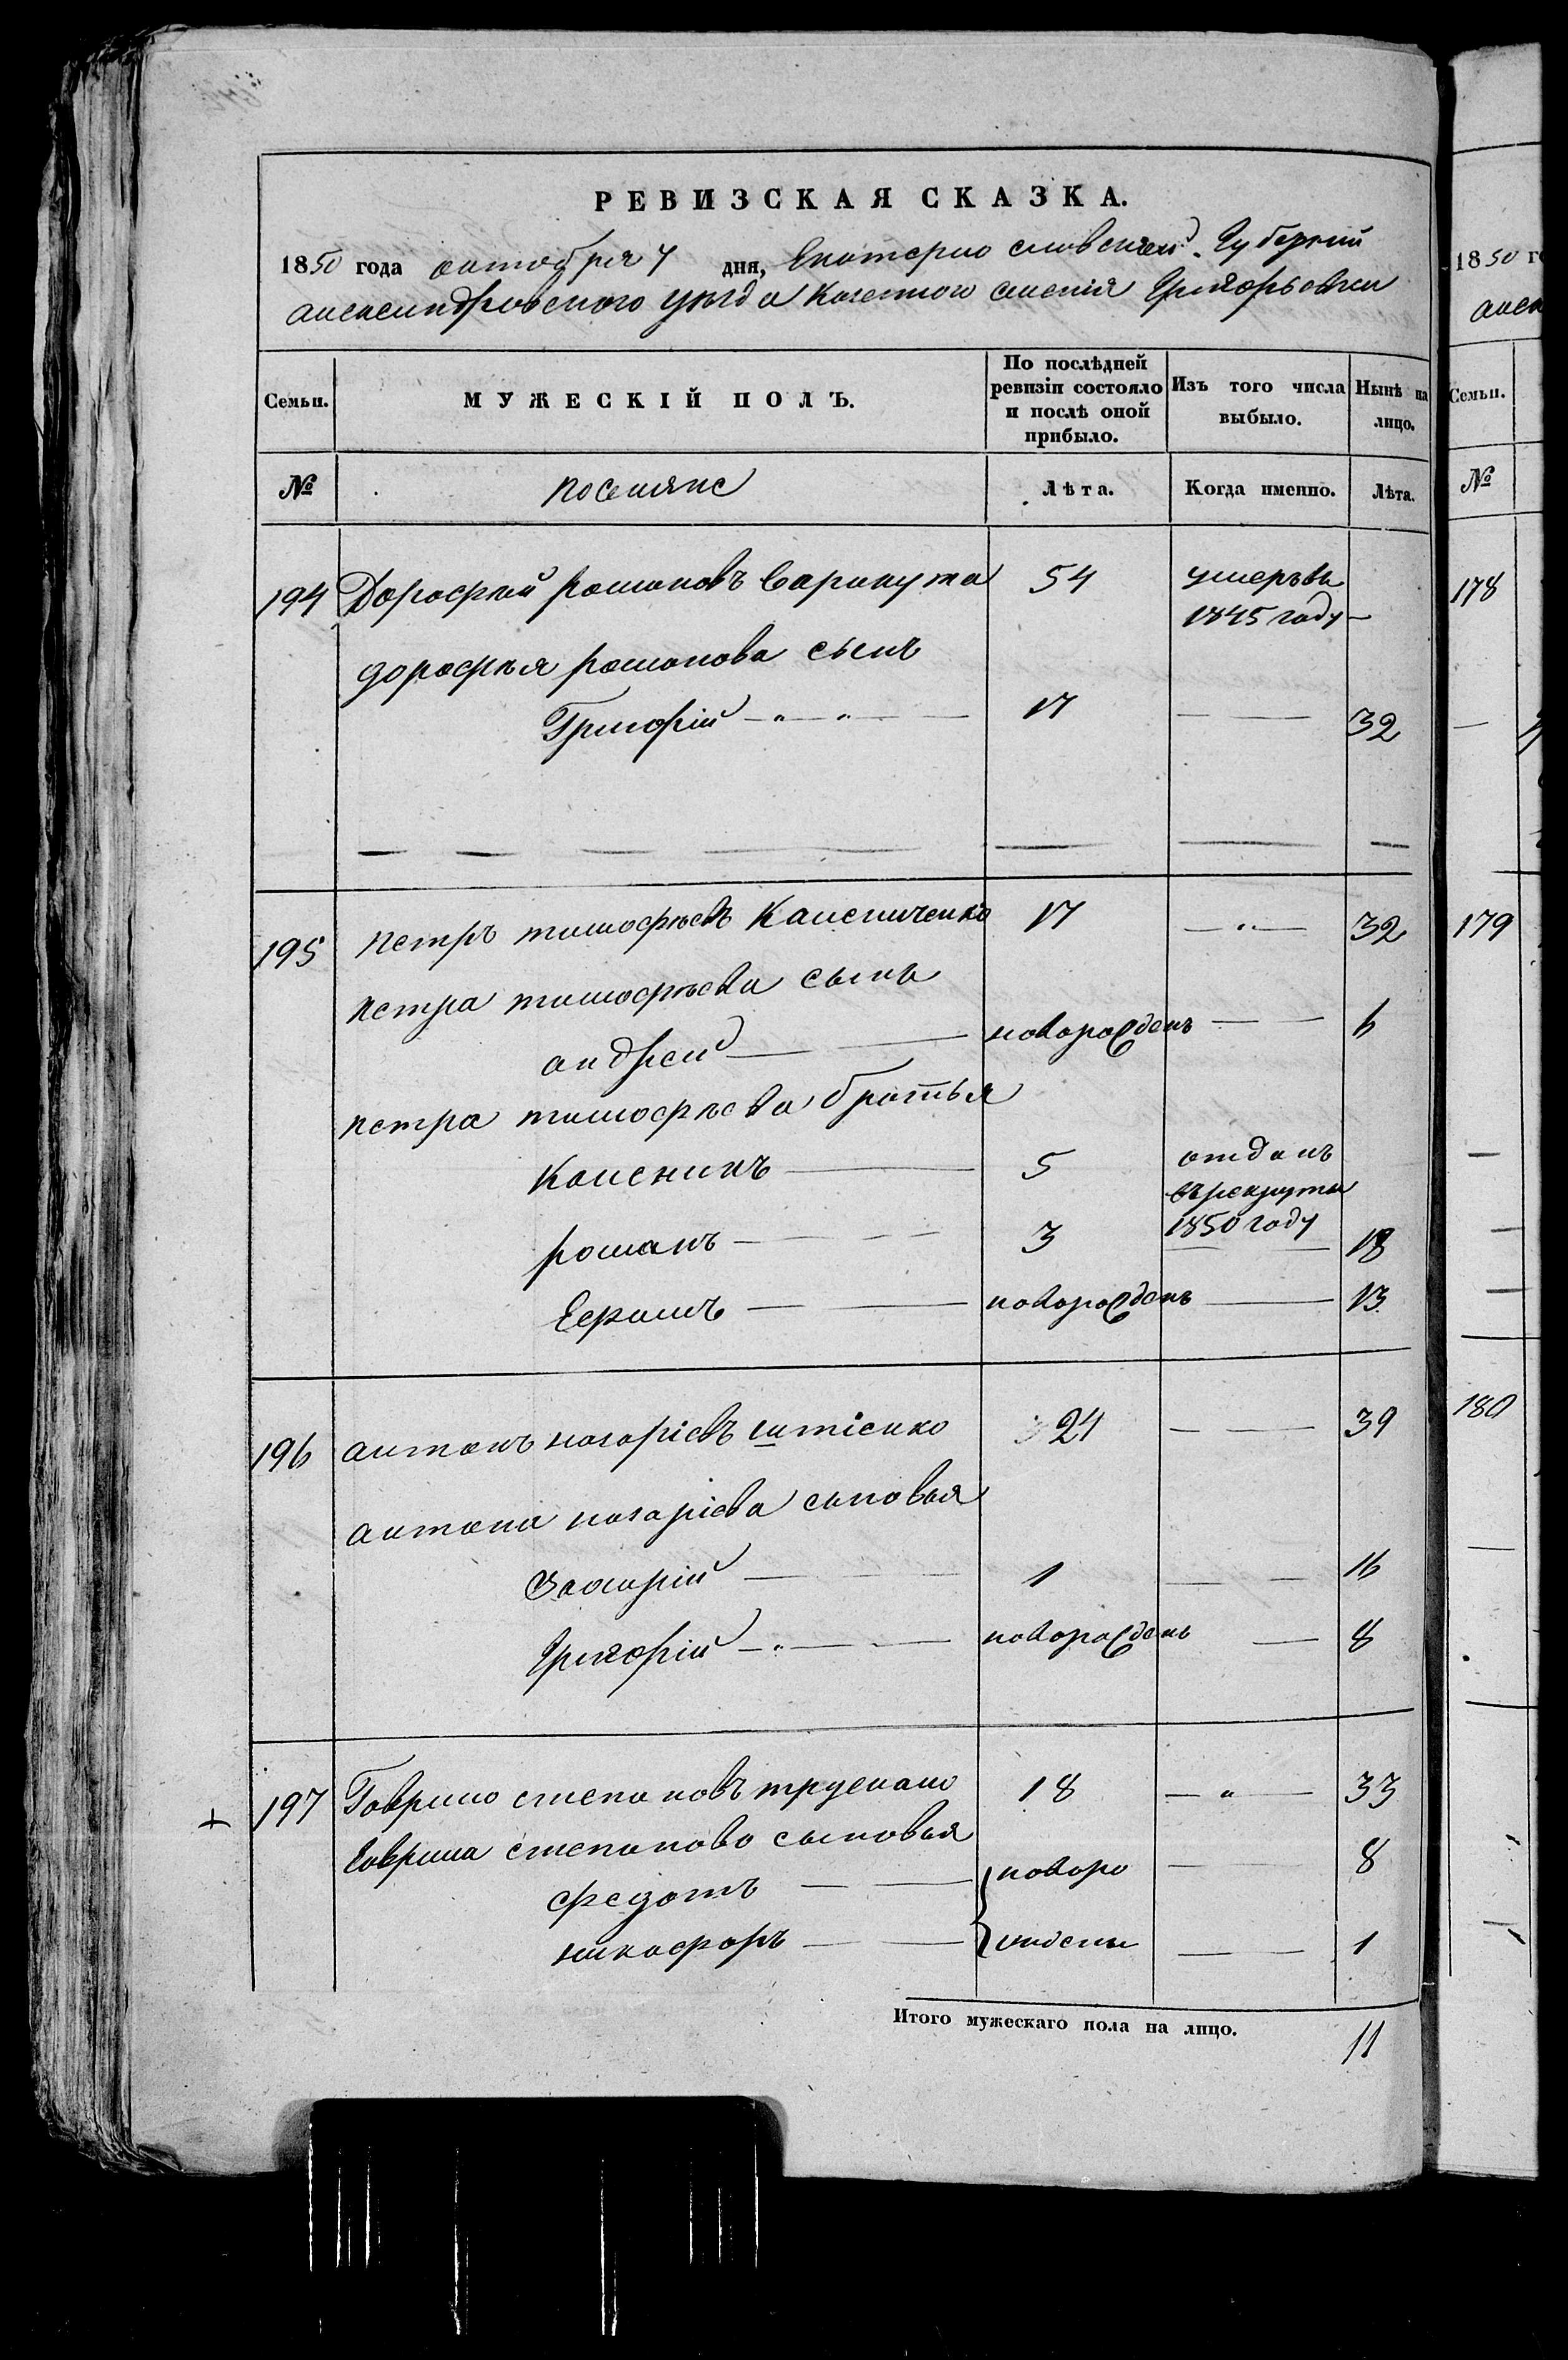 РЕВИЗСКАЯ СКАЗКА.
1850 года октября 4 дня, Екатеринославской Губернии
александровского уезда казенного селенія Григорьевки
Семьи. МУЖЕСКІЙ ПОЛЪ. По послѣдней ревизіи состояло и послѣ оной прибыло. Изъ того числа выбыло. Нынѣ на лицо.
№ поселяне Лѣта. Когда именно. Лѣта.
194 Дорофей романовъ Варакута 54 умеръ въ 1845 году —
дорофея романова сынъ
Григорій 17 — 32
195 петръ тимофеевъ Калениченко 17 — 32
петра тимофеева сынъ
андрей новорожденъ — 6
петра тимофеева братья
Каленикъ 5 отданъ въ рекруты 1850 году
романъ 3 — 18
Ефимъ новорожденъ — 13
196 антонъ назаріевъ 24 — 39
антона назаріева сыновья
Захарій 1 — 16
Григорій новорожденъ — 8
197 Гаврило степановъ 18 — 33
Гаврила степанова сыновья
федотъ новоро — 8
никифоръ ждены — 1
Итого мужескаго пола на лицо. 11
1850
Семьи.
№
178
179
180